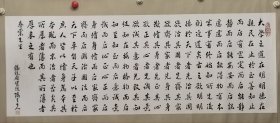 大學之道在明明德在
親民在止於至善知止
而后有定定而后能靜
靜而后能安安而后能
慮慮而后能得物有本
末事有終始知所先後
則近道矣古之欲明明
德於天下者先治其國
欲治其國者先齊其家
欲齊其家者先修其身
欲修其身者先正其心
欲正其心者先誠其意
欲誠其意者先致其知
致知在格物物格而后
知至知至而后意誠意
誠而后心正心正而后
身修身修而后家齊家
齊而后國治國治而后
天下平自天子以至於庶
人壹是皆以修身為本其
本亂而末治者否矣其所
厚者薄而其所薄者
厚未之有也